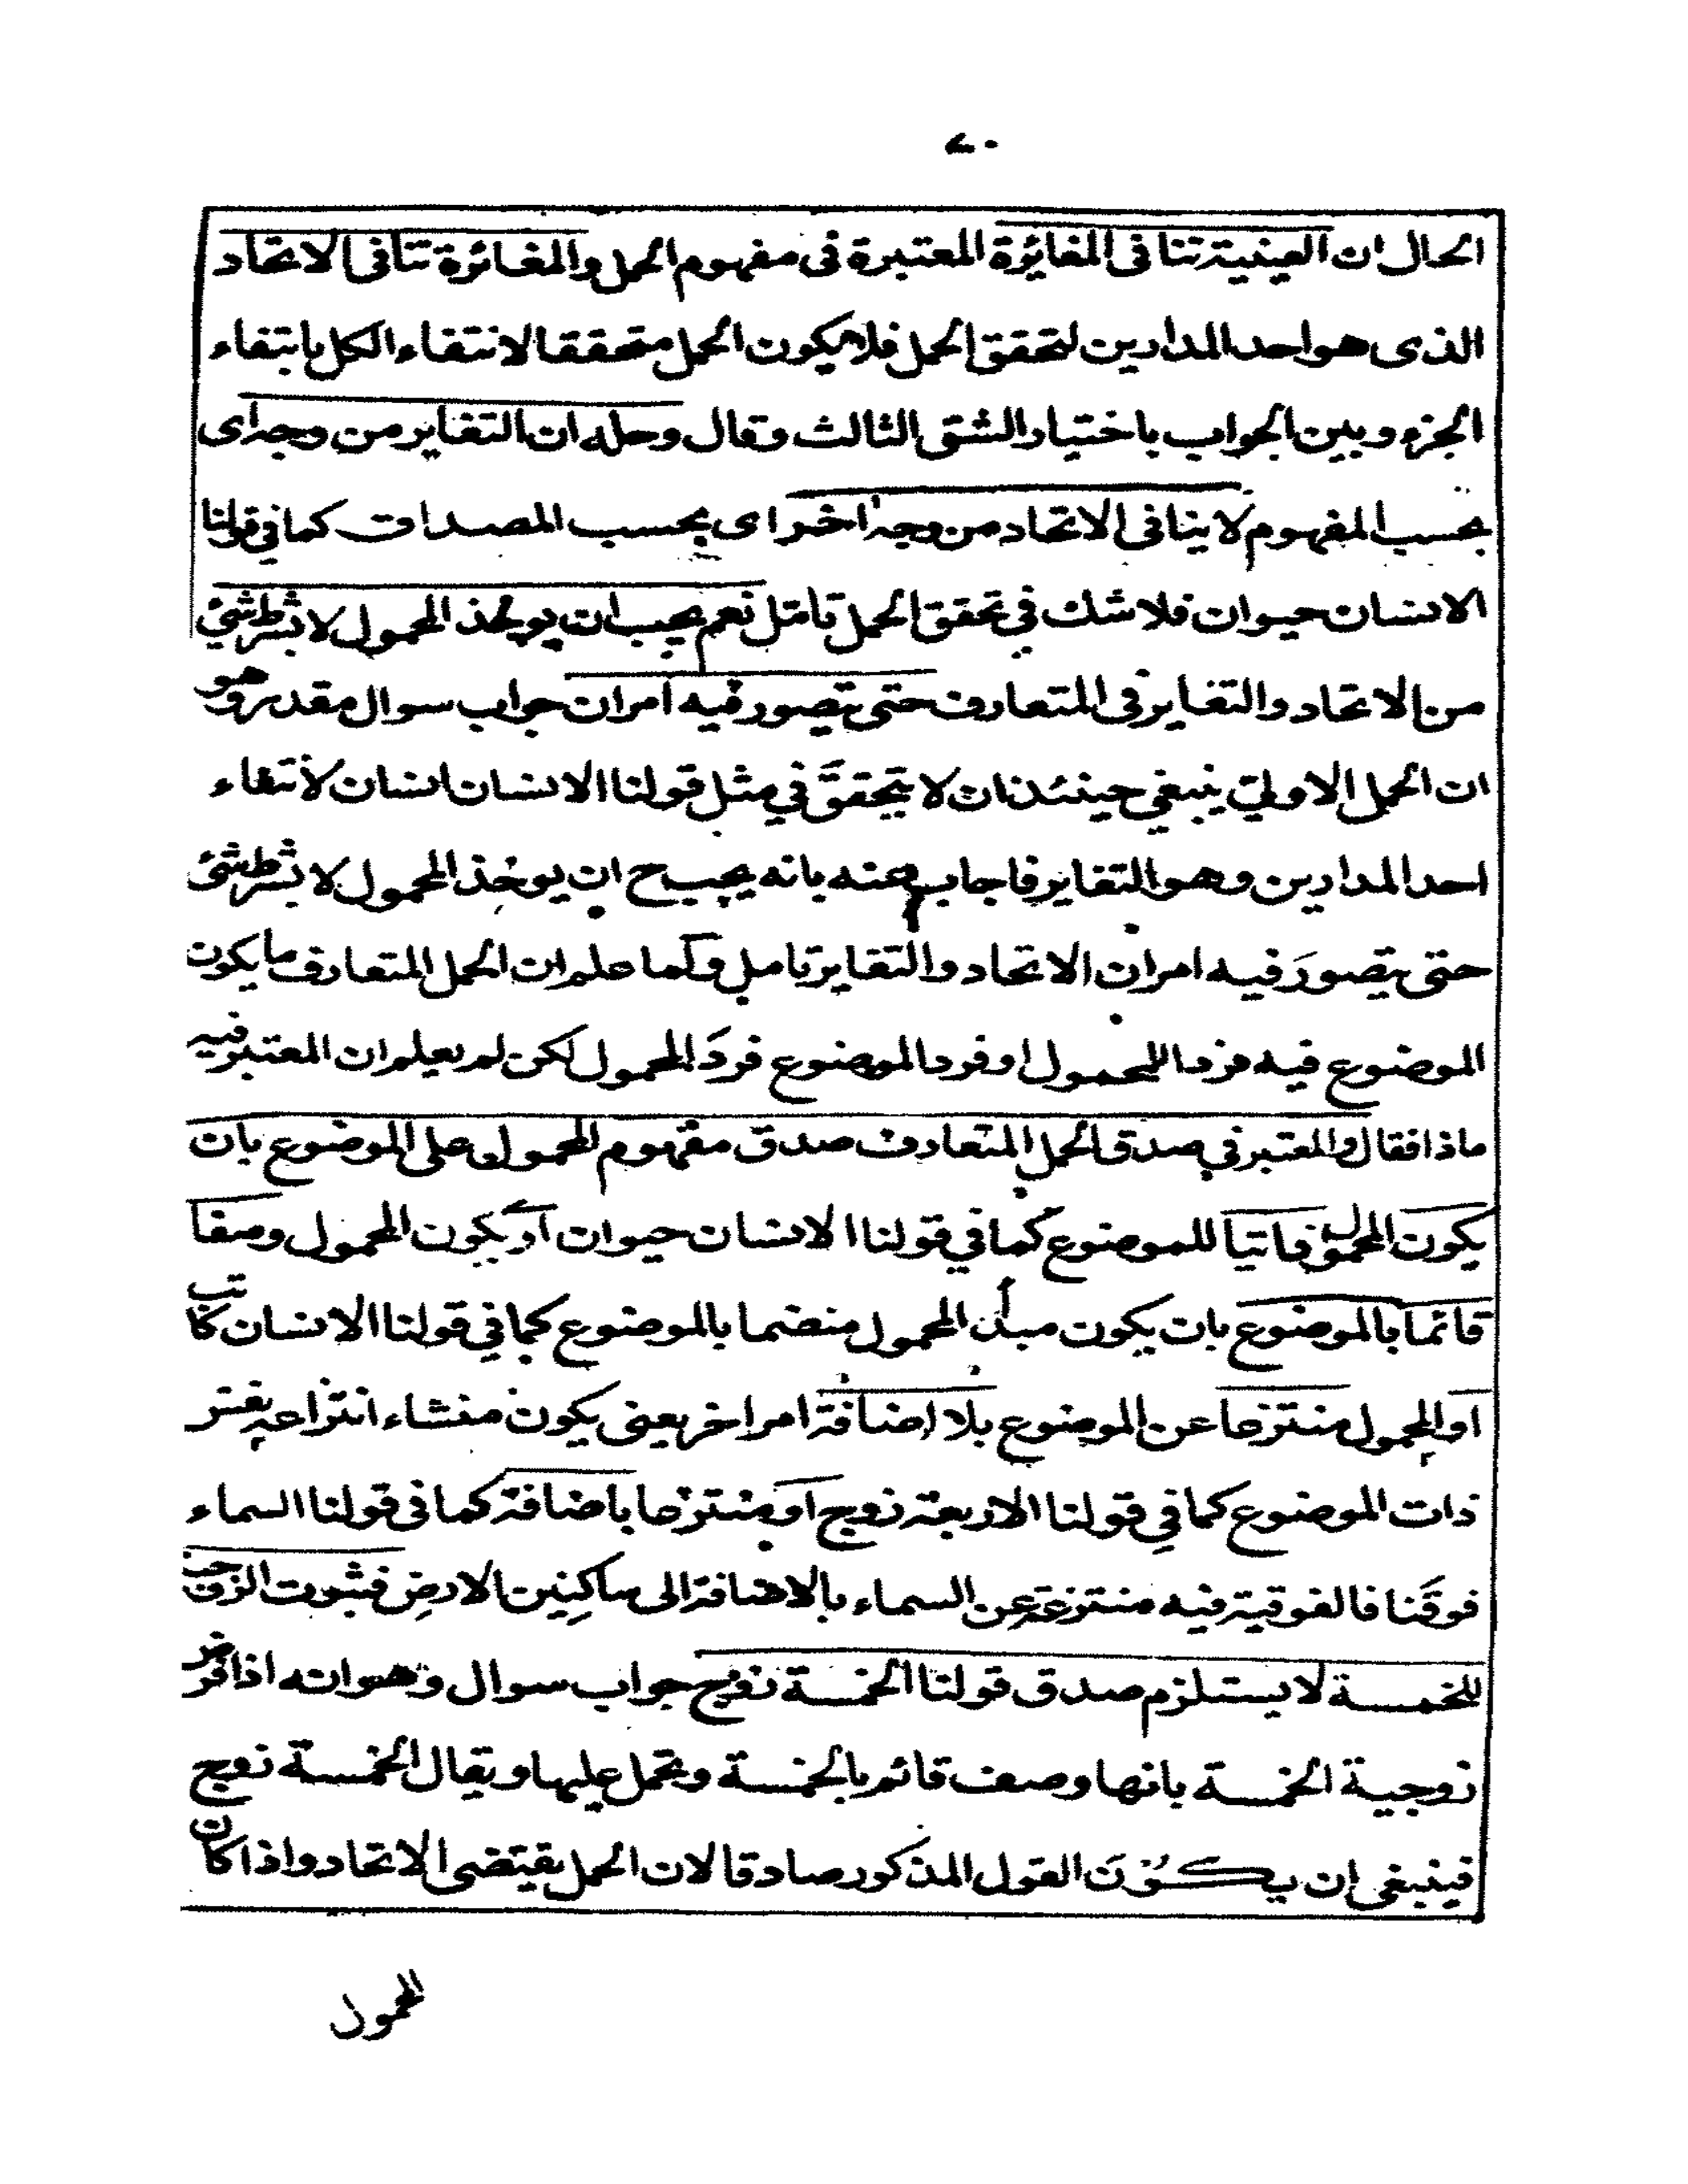 ٧٠
الحال ان العينية تنافى المغايرة المعتبرة فى مفهوم الحمل والمغائرة تنافى الاتحاد
الذى هو احد المدارين لتحقق الحمل فلا يكون الحمل متحققا لانتفاء الكل بانتفاء
الجزء وبين الجواب باختيار الشق الثالث وقال وحله ان التغاير من وجه اى
بحسب المفهوم لا ينافى الاتحاد من وجه اخر اى بحسب المصداق كما في قولنا
الانسان حيوان فلا شك في تحقق الحمل تامل نعم يجب ان يوخذ المحمول لا بشرط شئ
من الاتحاد والتغاير فى المتعارف حتى يتصور فيه امران جواب سوال مقدر وهو
ان الحمل الاولي ينبغي حينئذ ان لا يتحقق في مثل قولنا الانسان انسان لانتفاء
احد المدارين وهو التغاير فاجاب عنه بانه يجب ح ان يوخذ المحمول لا بشرط شئ
حتى يتصور فيه امران الاتحاد والتغاير تامل وكما علم ان الحمل المتعارف ما يكون
الموضوع فيه فردا للمحمول او فرد الموضوع فرد المحمول لكن لم يعلم ان المعتبر فيه
ماذا فقال والمعتبر في صدق الحمل المتعارف صدق مفهوم المحمول على الموضوع بان
يكون المحمول ذاتيا للموضوع كما في قولنا الانسان حيوان او يكون المحمول وصفا
قائما بالموضوع بان يكون مبدء المحمول منضما بالموضوع كما في قولنا الانسان كاتب
او المحمول منتزعا عن الموضوع بلا اضافة امر اخر يعنى يكون منشاء انتزاعه
ذات الموضوع كما في قولنا الاربعة زوج او منتزعا باضافة كما فى قولنا السماء
فوقنا فالفوقية فيه منتزعة عن السماء بالاضافة الى ساكنين الارض فثبوت الزوجية
للخمسة لا يستلزم صدق قولنا الخمسة زوج جواب سوال وهو انه اذا فرض
زوجية الخمسة بانها وصف قائم بالخمسة وتحمل عليها ويقال الخمسة زوج
فينبغى ان يكون القول المذكور صادقا لان الحمل يقتضى الاتحاد واذا كان
المحمول